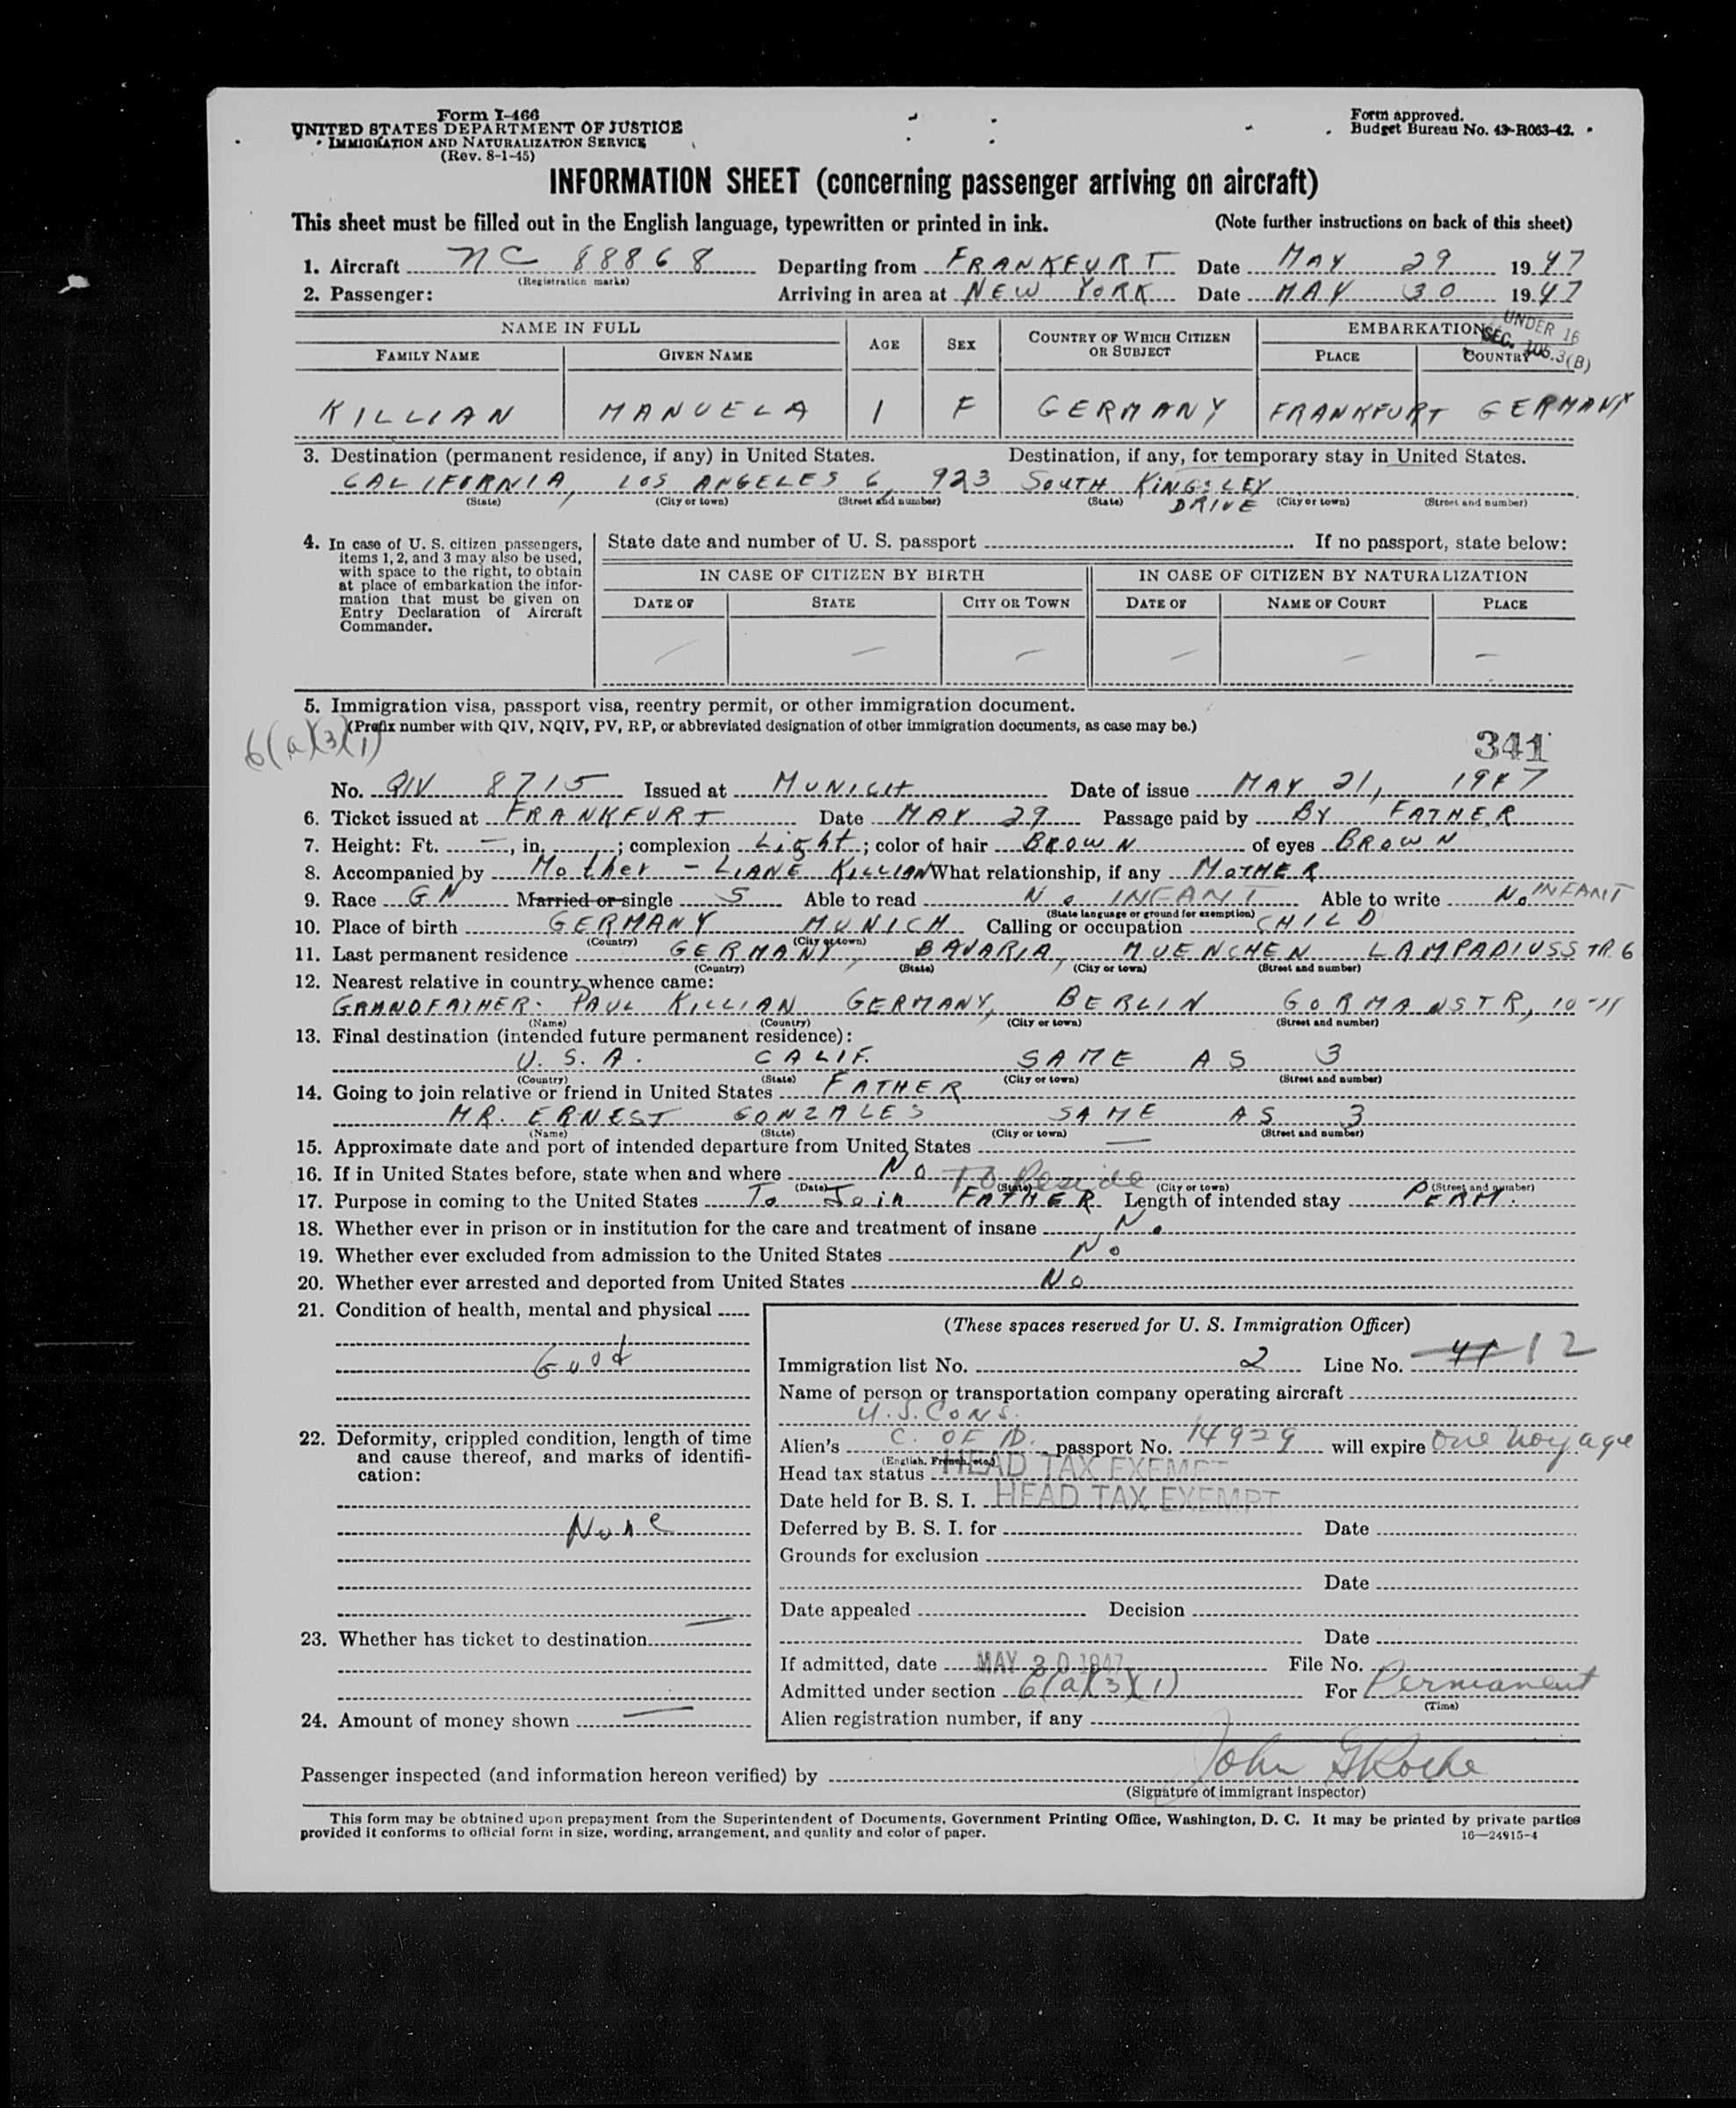 Form I-466
UNITED STATES DEPARTMENT OF JUSTICE
IMMIGRATION AND NATURALIZATION SERVICE
(Rev. 8-1-45)
Form approved.
Budget Bureau No. 43-R063-42.
INFORMATION SHEET (concerning passenger arriving on aircraft)
This sheet must be filled out in the English language, typewritten or printed in ink. (Note further instructions on back of this sheet)
1. Aircraft NC 88868 Departing from FRANKFURT Date MAY 29 1947
(Registration marks)
2. Passenger: Arriving in area at NEW YORK Date MAY 30 1947
UNDER 16
SEC. 106.3(B)
NAME IN FULL AGE SEX COUNTRY OF WHICH CITIZEN OR SUBJECT EMBARKATION
FAMILY NAME GIVEN NAME PLACE COUNTRY
KILLIAN MANUELA 1 F GERMANY FRANKFURT GERMANY
3. Destination (permanent residence, if any) in United States. Destination, if any, for temporary stay in United States.
CALIFORNIA, LOS ANGELES 6, 923 SOUTH KINGSLEY
DRIVE
(State) (City or town) (Street and number) (State) (City or town) (Street and number)
4. In case of U. S. citizen passengers, items 1, 2, and 3 may also be used, with space to the right, to obtain at place of embarkation the information that must be given on Entry Declaration of Aircraft Commander.
State date and number of U. S. passport If no passport, state below:
IN CASE OF CITIZEN BY BIRTH IN CASE OF CITIZEN BY NATURALIZATION
DATE OF STATE CITY OR TOWN DATE OF NAME OF COURT PLACE
5. Immigration visa, passport visa, reentry permit, or other immigration document.
(Prefix number with QIV, NQIV, PV, RP, or abbreviated designation of other immigration documents, as case may be.)
6(a)(3)(1)
341
No. QIV 8715 Issued at MUNICH Date of issue MAY 21, 1947
6. Ticket issued at FRANKFURT Date MAY 29 Passage paid by BY FATHER
7. Height: Ft. —, in. ; complexion Light; color of hair BROWN of eyes BROWN
8. Accompanied by Mother - LIANE KILLIAN What relationship, if any MOTHER
9. Race GN Married or single S Able to read No INFANT Able to write No INFANT
(State language or ground for exemption)
10. Place of birth GERMANY MUNICH Calling or occupation CHILD
(Country) (City or town)
11. Last permanent residence GERMANY, BAVARIA, MUENCHEN LAMPADIUSSTR. 6
(Country) (State) (City or town) (Street and number)
12. Nearest relative in country whence came:
GRANDFATHER: PAUL KILLIAN GERMANY, BERLIN GORMANSTR, 10-11
(Name) (Country) (City or town) (Street and number)
13. Final destination (intended future permanent residence):
U.S.A. CALIF. SAME AS 3
(Country) (State) (City or town) (Street and number)
14. Going to join relative or friend in United States FATHER
MR. ERNEST GONZALES SAME AS 3
(Name) (State) (City or town) (Street and number)
15. Approximate date and port of intended departure from United States —
16. If in United States before, state when and where No
(Date) (State) (City or town) (Street and number)
To Reside
17. Purpose in coming to the United States To Join FATHER Length of intended stay PERM.
18. Whether ever in prison or in institution for the care and treatment of insane No
19. Whether ever excluded from admission to the United States No
20. Whether ever arrested and deported from United States No
21. Condition of health, mental and physical
Good
22. Deformity, crippled condition, length of time and cause thereof, and marks of identification:
None
23. Whether has ticket to destination —
24. Amount of money shown —
(These spaces reserved for U. S. Immigration Officer)
Immigration list No. 2 Line No. 41 12
Name of person or transportation company operating aircraft
U.S. CONS.
Alien's C. OF ID. passport No. 14929 will expire One Voyage
(English, French, etc.)
Head tax status HEAD TAX EXEMPT
Date held for B. S. I. HEAD TAX EXEMPT
Deferred by B. S. I. for Date
Grounds for exclusion
Date
Date appealed Decision
Date
If admitted, date MAY 30 1947 File No.
Admitted under section 6(a)(3)(1) For Permanent
(Time)
Alien registration number, if any
Passenger inspected (and information hereon verified) by John G Roche
(Signature of immigrant inspector)
This form may be obtained upon prepayment from the Superintendent of Documents, Government Printing Office, Washington, D. C. It may be printed by private parties
provided it conforms to official form in size, wording, arrangement, and quality and color of paper.
16—24915-4